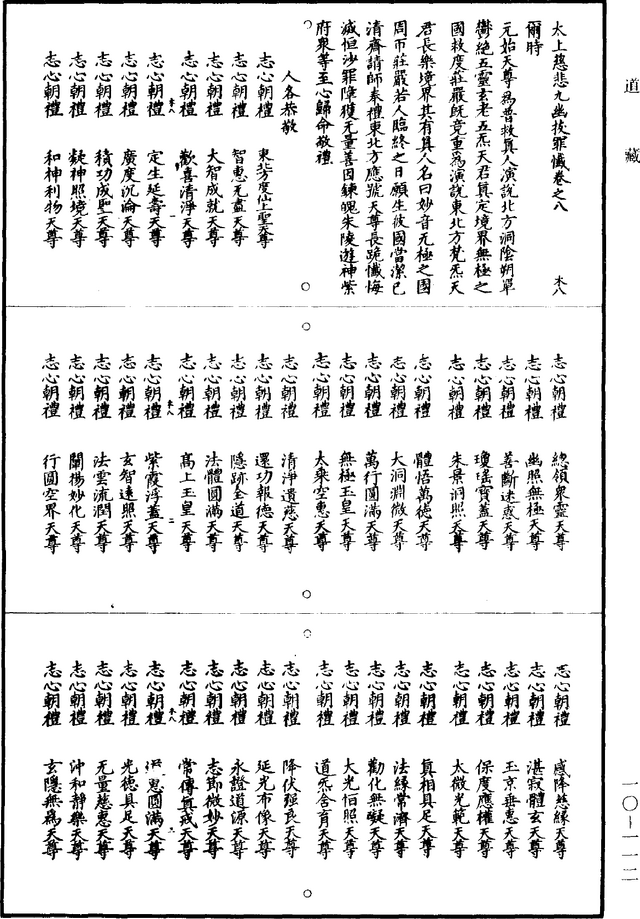 道藏
太上慈悲九幽拔罪懺卷之八
未八
爾時
元始天尊為普救真人演說北方洞陰朔單
鬱絕五靈玄老五炁天君真定境界無極之
國救度莊嚴既竟重為演說東北方梵炁天
君長樂境界其有真人名曰妙音无極之國
周帀莊嚴若人臨終之日願生彼國當潔已
清齋請師奉禮東北方應號天尊長跪懺悔
滅恒沙罪障獲无量善因鍊魄朱陵遊神紫
府衆等至心歸命敬禮
人各恭敬
志心朝禮 東北方度仙上聖天尊
志心朝禮 智惠无盡天尊
志心朝禮 大智成就天尊
志心朝禮 歡喜清淨天尊
未八 一
志心朝禮 定生延壽天尊
志心朝禮 廣度沉淪天尊
志心朝禮 積功成聖天尊
志心朝禮 凝神照境天尊
志心朝禮 和神利物天尊
志心朝禮 總領衆靈天尊
志心朝禮 幽照無極天尊
志心朝禮 善斷迷惑天尊
志心朝禮 瓊瑤寶蓋天尊
志心朝禮 朱景洞照天尊
志心朝禮 體悟萬德天尊
志心朝禮 大洞淵微天尊
志心朝禮 萬行圓滿天尊
志心朝禮 無極玉皇天尊
志心朝禮 太乘空惠天尊
志心朝禮 清淨遺慈天尊
志心朝禮 還功報德天尊
志心朝禮 隱跡全道天尊
志心朝禮 法體圓滿天尊
志心朝禮 高上玉皇天尊
未八 二
志心朝禮 紫霞浮蓋天尊
志心朝禮 玄智遠照天尊
志心朝禮 法雲流潤天尊
志心朝禮 闡揚妙化天尊
志心朝禮 行圓空界天尊
志心朝禮 感降慈緣天尊
志心朝禮 湛寂體玄天尊
志心朝禮 玉京垂惠天尊
志心朝禮 保度應權天尊
志心朝禮 太微光範天尊
志心朝禮 真相具足天尊
志心朝禮 法緣常濟天尊
志心朝禮 勸化無礙天尊
志心朝禮 大光怛照天尊
志心朝禮 道炁含育天尊
志心朝禮 降伏經良天尊
志心朝禮 延光布像天尊
志心朝禮 永證道源天尊
志心朝禮 志節微妙天尊
志心朝禮 常傳真戒天尊
未八
志心朝禮 恩圓滿天尊
志心朝禮 光德具足天尊
志心朝禮 无量慈惠天尊
志心朝禮 沖和靜樂天尊
志心朝禮 玄隱無為天尊
一〇-一一二